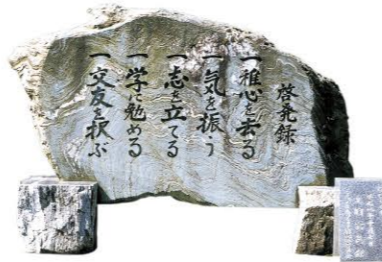 啓発録
一稚心を去る
一気を振う
一志を立てる
一学に勉める
一交友を択ぶ